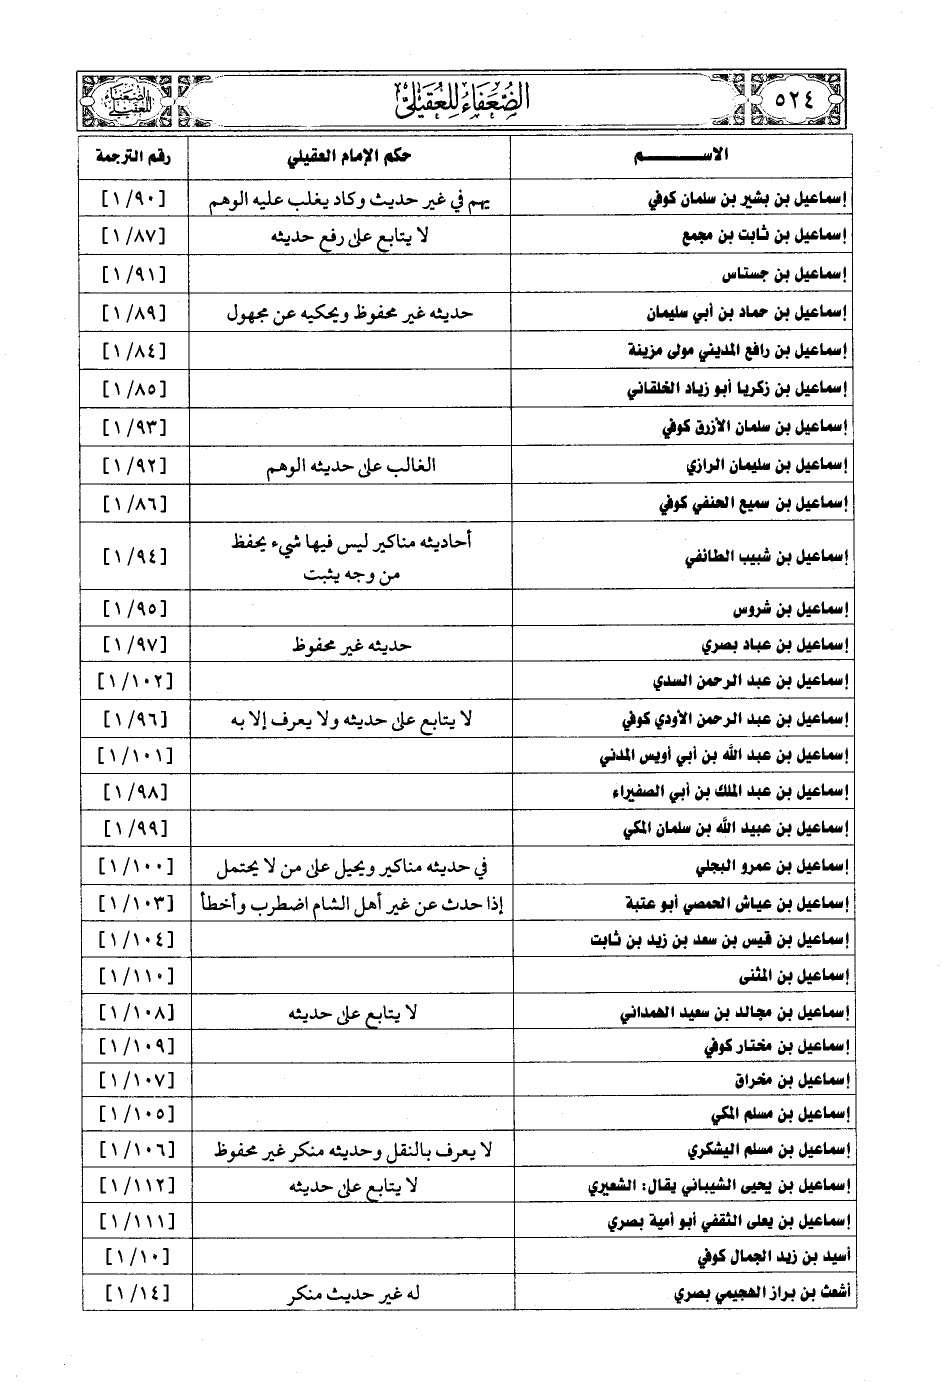 ٥٢٤ الضعفاء للعقيلي الضعفاء للعقيلي
الاســـــــم حكم الإمام العقيلي رقم الترجمة
إسماعيل بن بشير بن سلمان كوفي يهم في غير حديث وكاد يغلب عليه الوهم [١/٩٠]
إسماعيل بن ثابت بن مجمع لا يتابع على رفع حديثه [١/٨٧]
إسماعيل بن جستاس [١/٩١]
إسماعيل بن حماد بن أبي سليمان حديثه غير محفوظ ويحكيه عن مجهول [١/٨٩]
إسماعيل بن رافع المديني مولى مزينة [١/٨٤]
إسماعيل بن زكريا أبو زياد الخلقاني [١/٨٥]
إسماعيل بن سلمان الأزرق كوفي [١/٩٣]
إسماعيل بن سليمان الرازي الغالب على حديثه الوهم [١/٩٢]
إسماعيل بن سميع الحنفي كوفي [١/٨٦]
إسماعيل بن شبيب الطائفي أحاديثه مناكير ليس فيها شيء يحفظ
من وجه يثبت [١/٩٤]
إسماعيل بن شروس [١/٩٥]
إسماعيل بن عباد بصري حديثه غير محفوظ [١/٩٧]
إسماعيل بن عبد الرحمن السدي [١/١٠٢]
إسماعيل بن عبد الرحمن الأودي كوفي لا يتابع على حديثه ولا يعرف إلا به [١/٩٦]
إسماعيل بن عبد الله بن أبي أويس المدني [١/١٠١]
إسماعيل بن عبد الملك بن أبي الصفيراء [١/٩٨]
إسماعيل بن عبيد الله بن سلمان المكي [١/٩٩]
إسماعيل بن عمرو البجلي في حديثه مناكير ويحيل على من لا يحتمل [١/١٠٠]
إسماعيل بن عياش الحمصي أبو عتبة إذا حدث عن غير أهل الشام اضطرب وأخطأ [١/١٠٣]
إسماعيل بن قيس بن سعد بن زيد بن ثابت [١/١٠٤]
إسماعيل بن المثنى [١/١١٠]
إسماعيل بن مجالد بن سعيد الهمداني لا يتابع على حديثه [١/١٠٨]
إسماعيل بن مختار كوفي [١/١٠٩]
إسماعيل بن مخراق [١/١٠٧]
إسماعيل بن مسلم المكي [١/١٠٥]
إسماعيل بن مسلم اليشكري لا يعرف بالنقل وحديثه منكر غير محفوظ [١/١٠٦]
إسماعيل بن يحيى الشيباني يقال: الشعيري لا يتابع على حديثه [١/١١٢]
إسماعيل بن يعلى الثقفي أبو أمية بصري [١/١١١]
أسيد بن زيد الجمال كوفي [١/١٠]
أشعث بن براز الهجيمي بصري له غير حديث منكر [١/١٤]